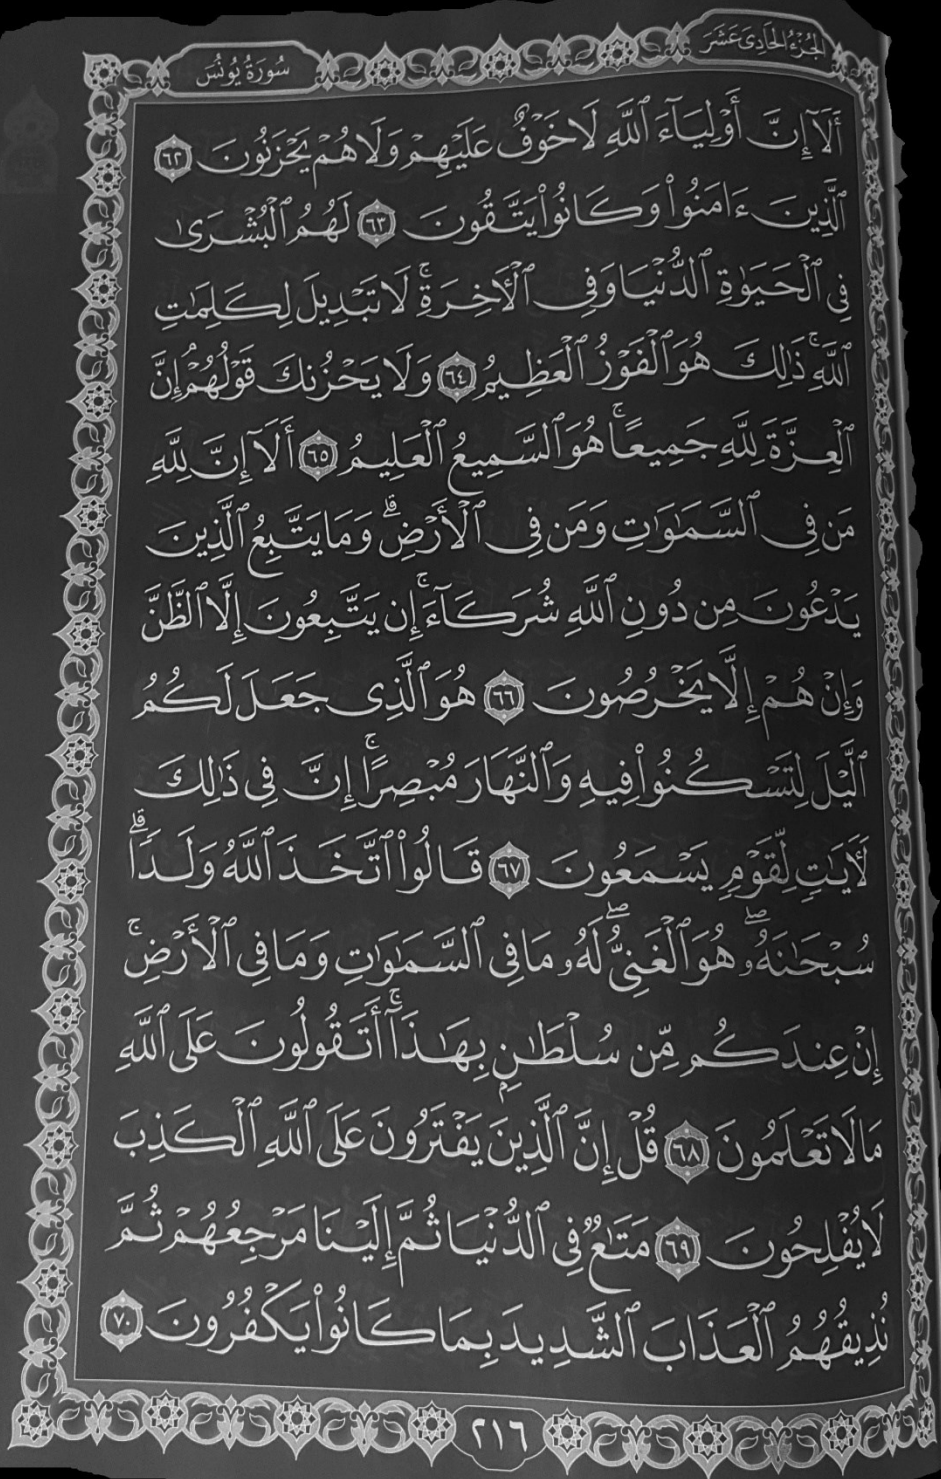 الجُزْءُ الحَادِىَ عَشَرَ
سُورَةُ يُونُسَ
أَلَآ إِنَّ أَوْلِيَآءَ ٱللَّهِ لَا خَوْفٌ عَلَيْهِمْ وَلَا هُمْ يَحْزَنُونَ ٦٢
ٱلَّذِينَ ءَامَنُوا۟ وَكَانُوا۟ يَتَّقُونَ ٦٣ لَهُمُ ٱلْبُشْرَىٰ
فِى ٱلْحَيَوٰةِ ٱلدُّنْيَا وَفِى ٱلْءَاخِرَةِ ۚ لَا تَبْدِيلَ لِكَلِمَٰتِ
ٱللَّهِ ۚ ذَٰلِكَ هُوَ ٱلْفَوْزُ ٱلْعَظِيمُ ٦٤ وَلَا يَحْزُنكَ قَوْلُهُمْ ۘ إِنَّ
ٱلْعِزَّةَ لِلَّهِ جَمِيعًا ۚ هُوَ ٱلسَّمِيعُ ٱلْعَلِيمُ ٦٥ أَلَآ إِنَّ لِلَّهِ
مَن فِى ٱلسَّمَٰوَٰتِ وَمَن فِى ٱلْأَرْضِ ۗ وَمَا يَتَّبِعُ ٱلَّذِينَ
يَدْعُونَ مِن دُونِ ٱللَّهِ شُرَكَآءَ ۚ إِن يَتَّبِعُونَ إِلَّا ٱلظَّنَّ
وَإِنْ هُمْ إِلَّا يَخْرُصُونَ ٦٦ هُوَ ٱلَّذِى جَعَلَ لَكُمُ
ٱلَّيْلَ لِتَسْكُنُوا۟ فِيهِ وَٱلنَّهَارَ مُبْصِرًا ۚ إِنَّ فِى ذَٰلِكَ
لَءَايَٰتٍ لِّقَوْمٍ يَسْمَعُونَ ٦٧ قَالُوا۟ ٱتَّخَذَ ٱللَّهُ وَلَدًا ۗ
سُبْحَٰنَهُۥ ۖ هُوَ ٱلْغَنِىُّ ۖ لَهُۥ مَا فِى ٱلسَّمَٰوَٰتِ وَمَا فِى ٱلْأَرْضِ ۚ
إِنْ عِندَكُم مِّن سُلْطَٰنٍۭ بِهَٰذَآ ۚ أَتَقُولُونَ عَلَى ٱللَّهِ
مَا لَا تَعْلَمُونَ ٦٨ قُلْ إِنَّ ٱلَّذِينَ يَفْتَرُونَ عَلَى ٱللَّهِ ٱلْكَذِبَ
لَا يُفْلِحُونَ ٦٩ مَتَٰعٌ فِى ٱلدُّنْيَا ثُمَّ إِلَيْنَا مَرْجِعُهُمْ ثُمَّ
نُذِيقُهُمُ ٱلْعَذَابَ ٱلشَّدِيدَ بِمَا كَانُوا۟ يَكْفُرُونَ ٧٠
٢١٦